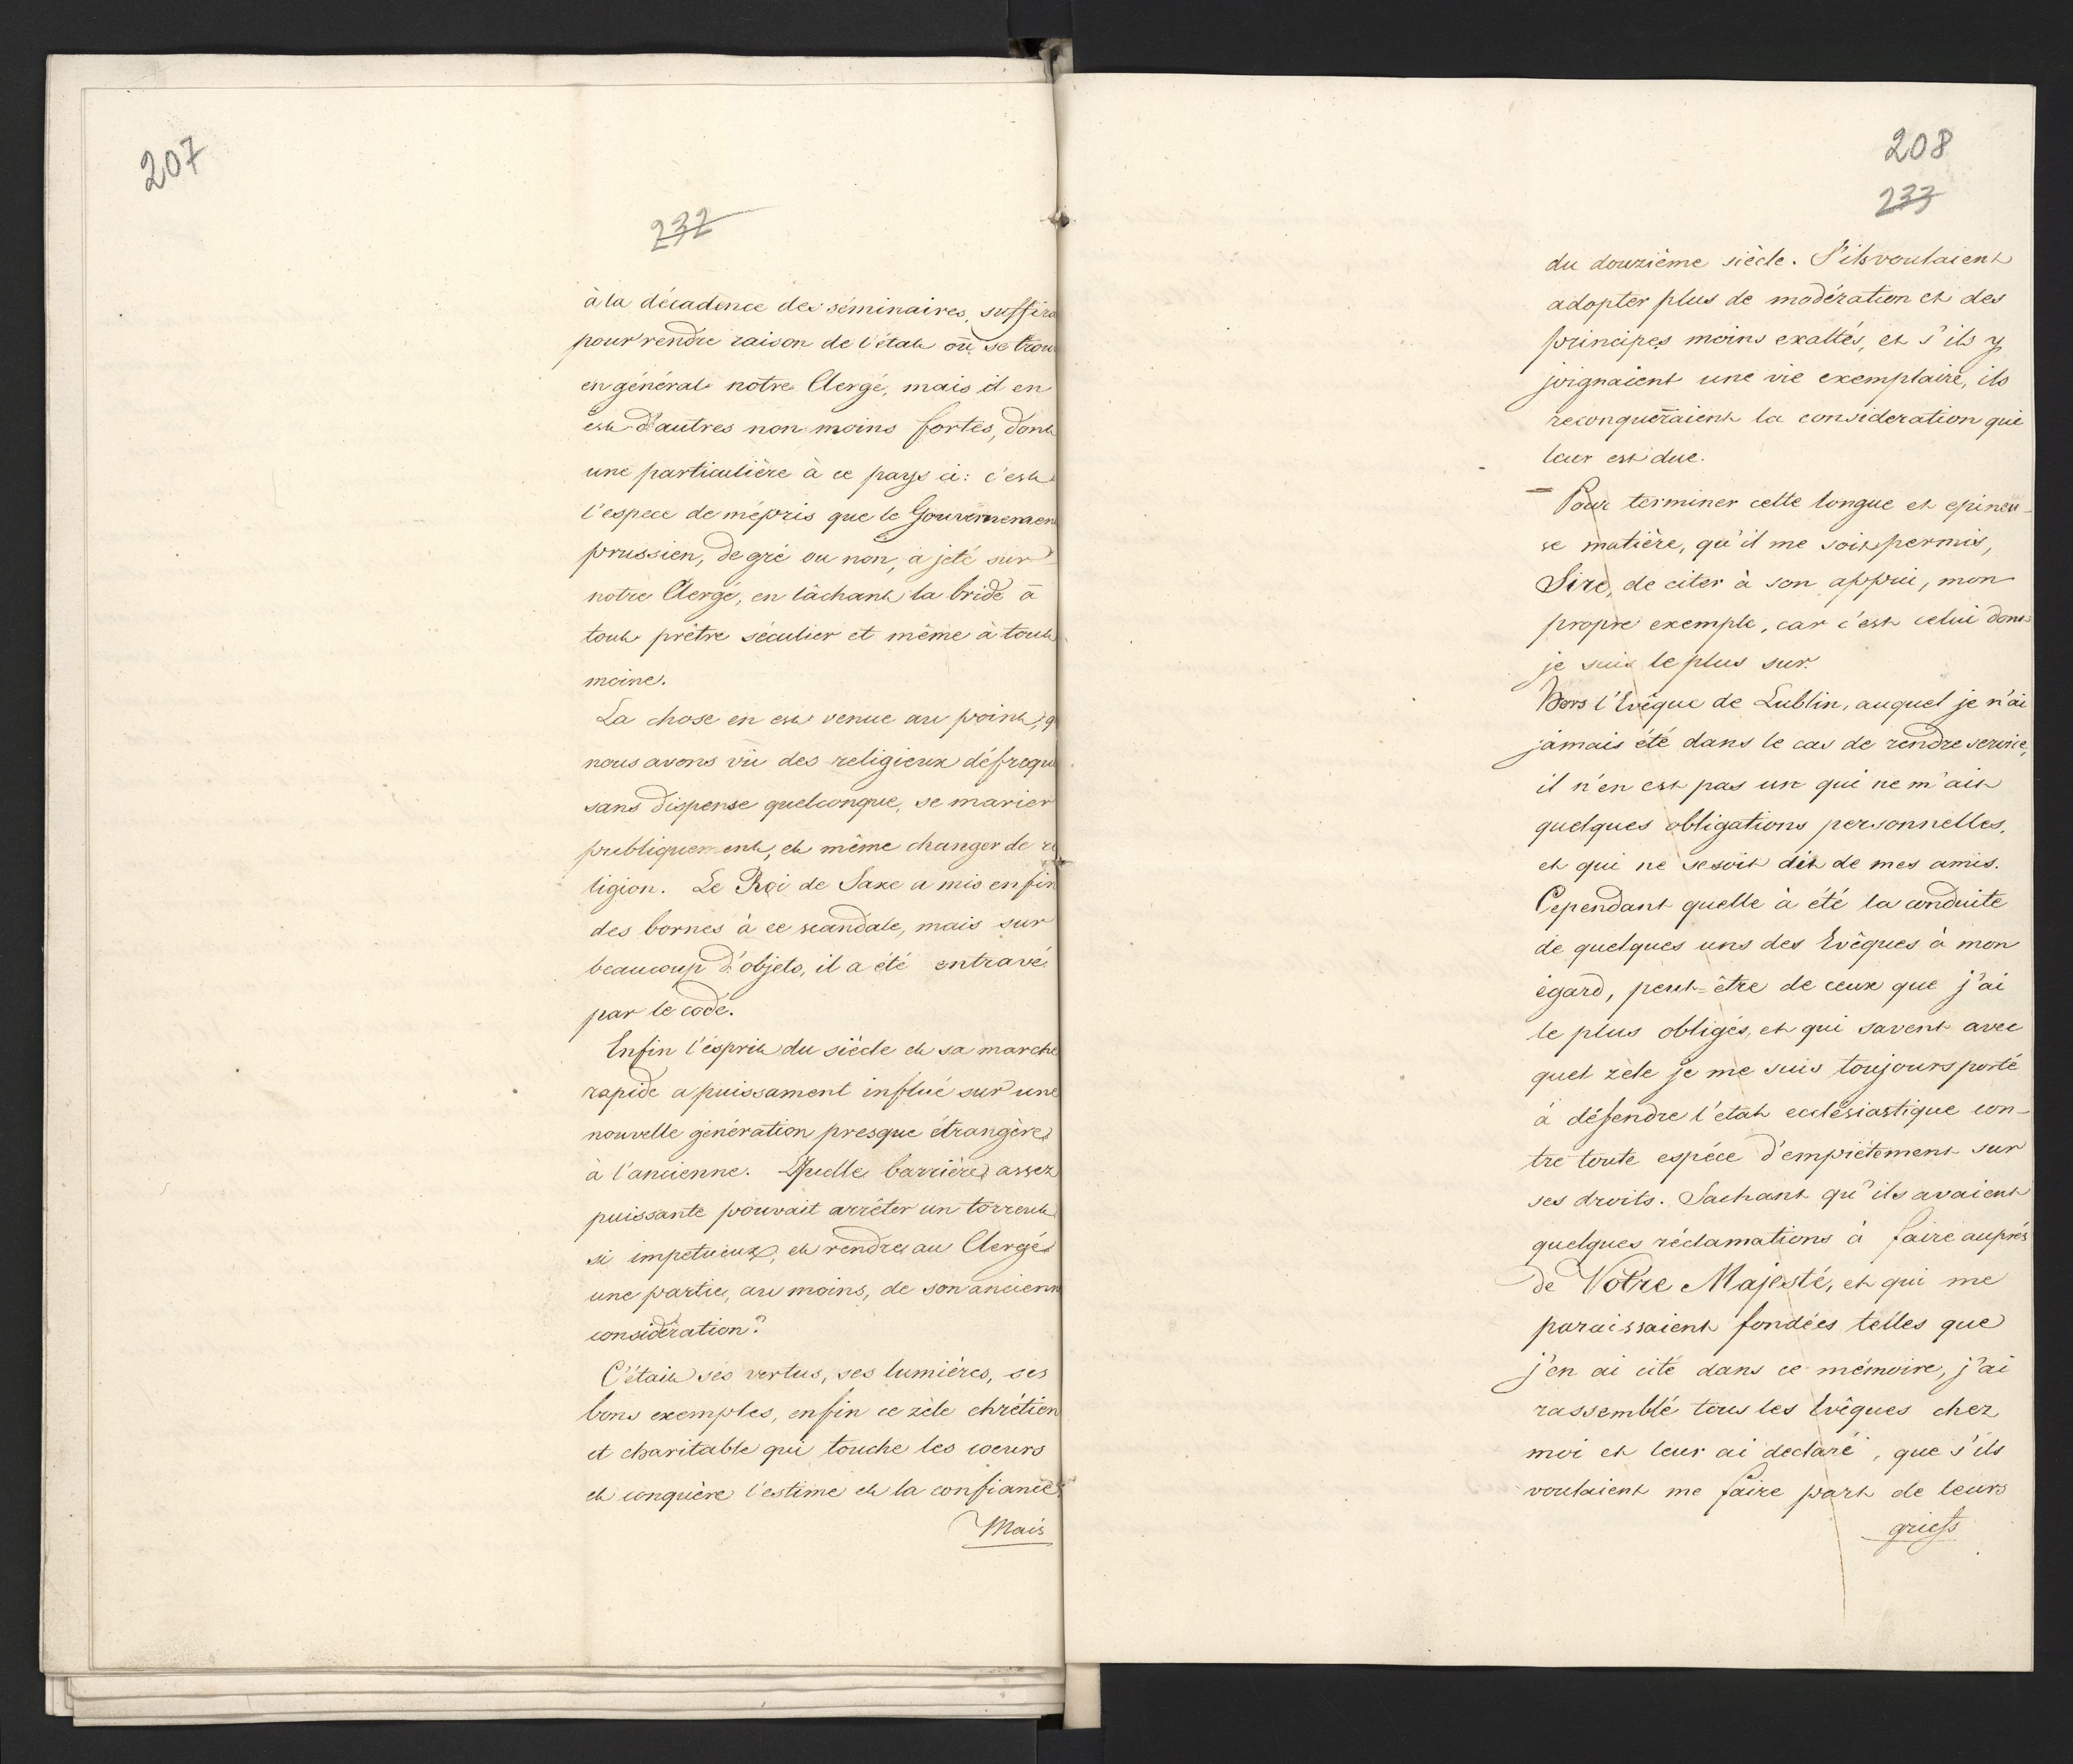 207
232
à la décadence des séminaires, suffira
pour rendre raison de l'état où se trou
en général notre Clergé, mais il en
est d'autres non moins fortes, dont
une particulière à ce pays ci: c'est
l'espece de mépris que le Gouvernemen
prussien, de gré ou non, a jeté sur
notre Clergé, en lâchant la bride à
tout prêtre séculier et même à tout
moine.
La chose en est venue au point, q
nous avons vû des religieux défroqu
sans dispense quelconque, se marier
publiquement, et même changer de re
ligion. Le Roi de Saxe a mis enfin
des bornes à ce scandale, mais sur
beaucoup d'objets, il a été entravé
par le code.
Enfin l'ésprit du siècle et sa marche
rapide a puissament influé sur une
nouvelle génération presque étrangère
à l'ancienne. Quelle barrière assez
puissante pouvait arrêter un torrent
si impetueux, et rendre au Clergé
une partie, au moins, de son ancienn
considération?
C'était ses vertus, ses lumières, ses
bons exemples, enfin ce zèle chrétien
et charitable qui touche les coeurs
et conquière l'estime et la confiance.
Mais
208
233
du douzième siècle. S'ils voulaient
adopter plus de modération et des
principes moins exaltés, et s'ils y
joignaient une vie exemplaire, ils
reconqueraient la consideration qui
leur est due.
Pour terminer cette longue et epineu-
se matière, qu'il me soit permis,
Sire, de citer à son appui, mon
propre exemple, car c'est celui dont
je suis le plus sur.
Hors l'Evêque de Lublin, auquel je n'ai
jamais été dans le cas de rendre service,
il n'en est pas un qui ne m'ait
quelques obligations personnelles,
et qui ne se soit dit de mes amis.
Cependant quelle à été la conduite
de quelques uns des Evêques à mon
égard, peut-être de ceux que j'ai
le plus obligés, et qui savent avec
quel zèle je me suis toujours porté
à défendre l'etat ecclésiastique con-
tre toute espéce d'empiétement sur
ses droits. Sachant qu'ils avaient
quelques réclamations à faire auprés
de Votre Majesté, et qui me
paraissaient fondées telles que
j'en ai cité dans ce mémoire, j'ai
rassemblé tous les Evêques chez
moi et leur ai declaré, que s'ils
voulaient me faire part de leurs
griefs